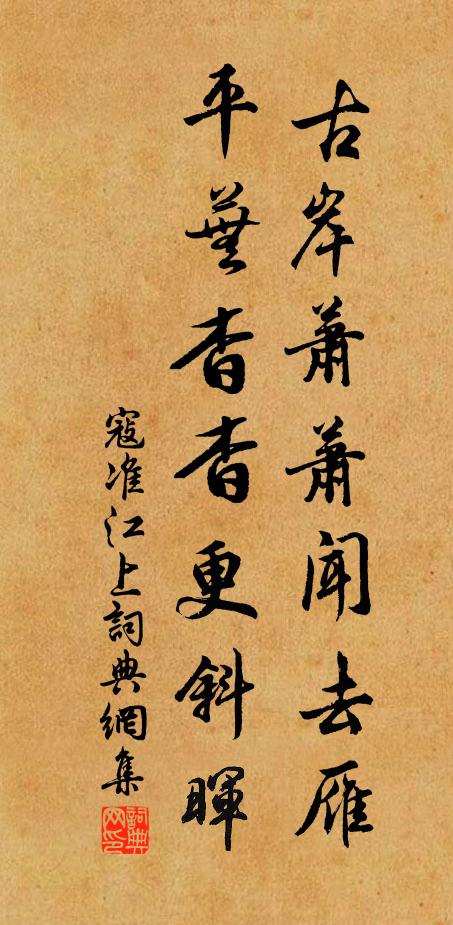 古岸蕭蕭聞去雁
平蕪杳杳更斜暉
寇准江上詞典網集
詞典網印